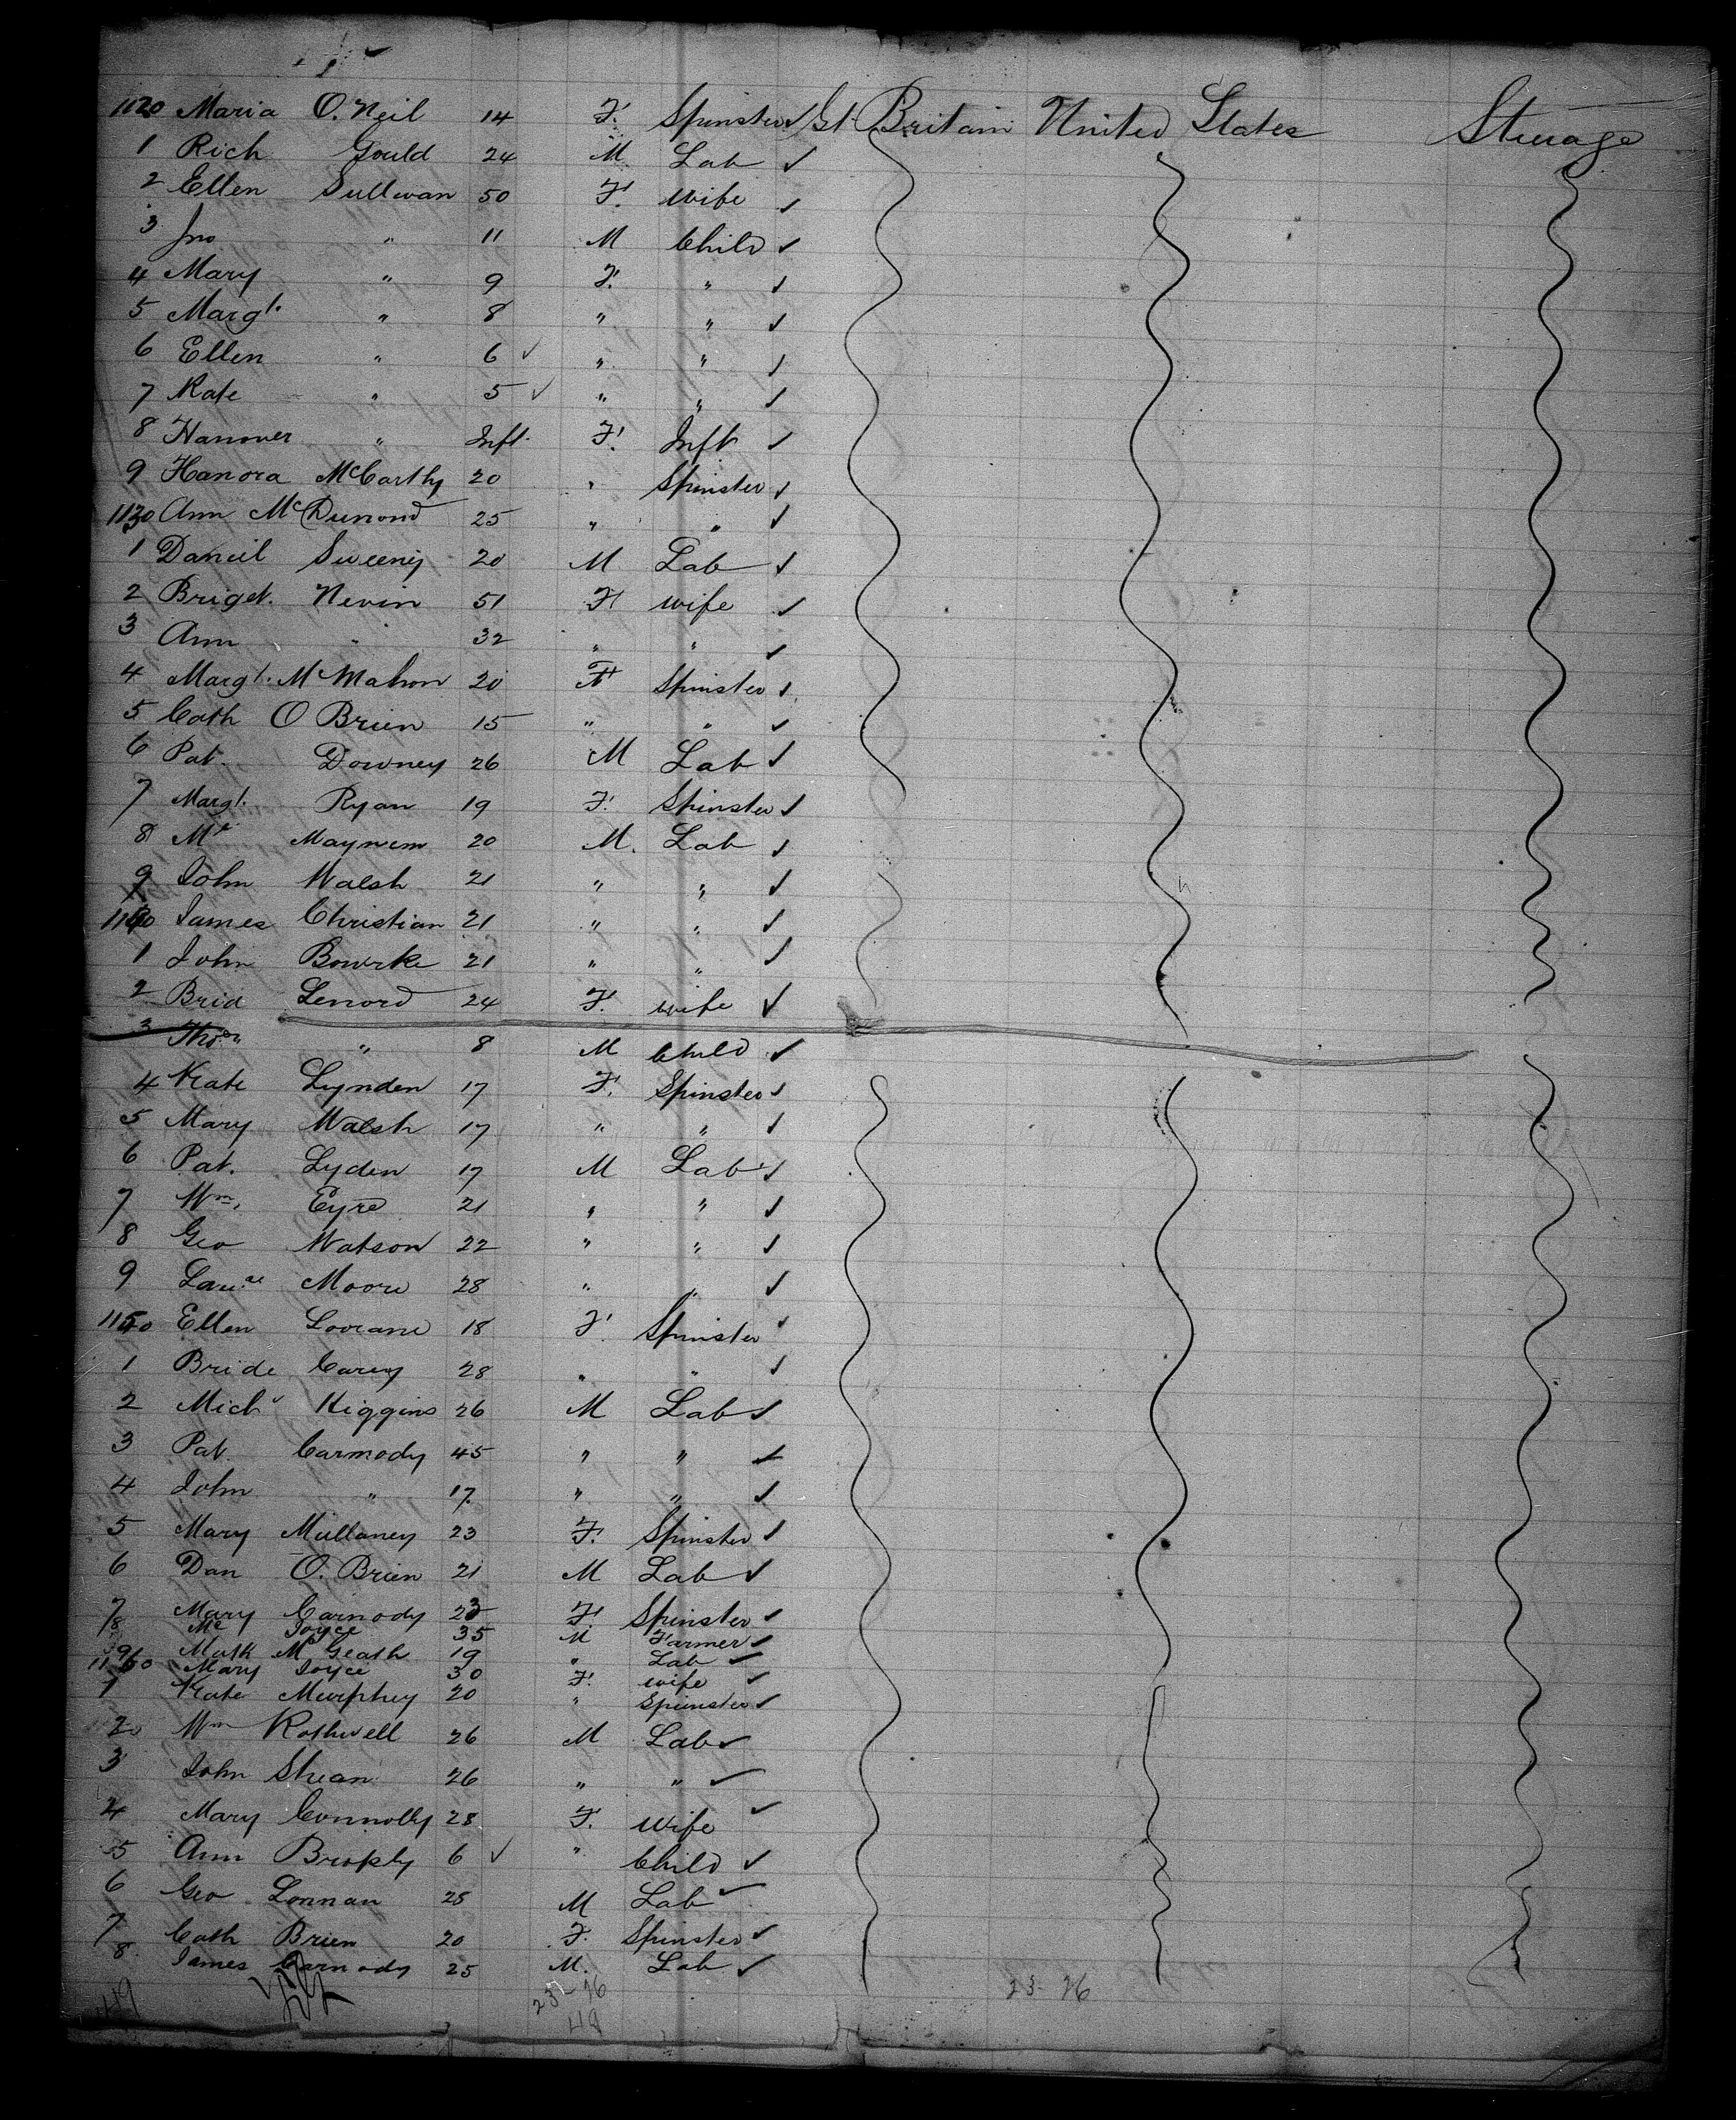 1120 Maria O. Neil 14 F. Spinster Gt Britain United States Steerage
1 Rich Gould 24 M. Lab
2 Ellen Sullivan 50 F. Wife
3 Jno " 11 M Child
4 Mary " 9 F. "
5 Margt. " 8 " "
6 Ellen " 6 " "
7 Kate " 5 " "
8 Hannver " Inft. F. Inft
9 Hanora McCarthy 20 " Spinster
1130 Ann Mc Dunond 25 " "
1 Daneil Sweeney 20 M Lab
2 Briget. Nevin 51 F wife
3 Ann " 32 " "
4 Margt. McMahon 20 F Spinster
5 Cath O Brien 15 " "
6 Pat. Downey 26 M Lab
7 Margt. Ryan 19 F. Spinster
8 20 M. Lab
9 John Walsh 21 " "
1140 James Christian 21 " "
1 John Bowrke 21 " "
2 Brid Lenord 24 F. wife
3 Thos " 8 M Child
4 Kate Lynden 17 F. Spinster
5 Mary Walsh 17 " "
6 Pat. Lyden 17 M Lab
7 Wm. Eyre 21 " "
8 Geo Watson 22 " "
9 Moore 28 " "
1150 Ellen Lovrane 18 F. Spinster
1 Bride Carey 28 " "
2 Michl Higgins 26 M Lab
3 Pat. Carmody 45 " "
4 John " 17 " "
5 Mary Mullaney 23 F. Spinster
6 Dan O. Brien 21 M Lab
7 Mary Carnody 23 F. Spinster
8 Joyce 35 M Farmer
9 Math McGeath 19 " Lab
1160 Mary Joyce 30 F. wife
1 Kate Murphey 20 " Spinster
2 Wm Rothwell 26 M Lab
3 John Shean 26 " "
4 Mary Connolly 28 F. Wife
5 Ann Brophy 6 " Child
6 Geo Lonnan 25 M Lab
7 Cath Brien 20 F. Spinster
8 James Carnody 25 M. Lab
49 23-26 23-26
49